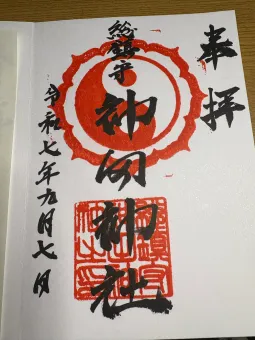 奉拝
総鎮守
神明神社
令和七年九月七日